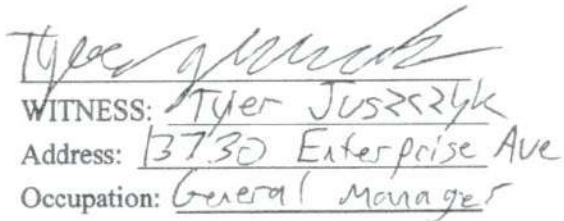 Tyler
WITNESS: Tyler Juszczyk
Address: 13730 Enterprise Ave
Occupation: General Manager